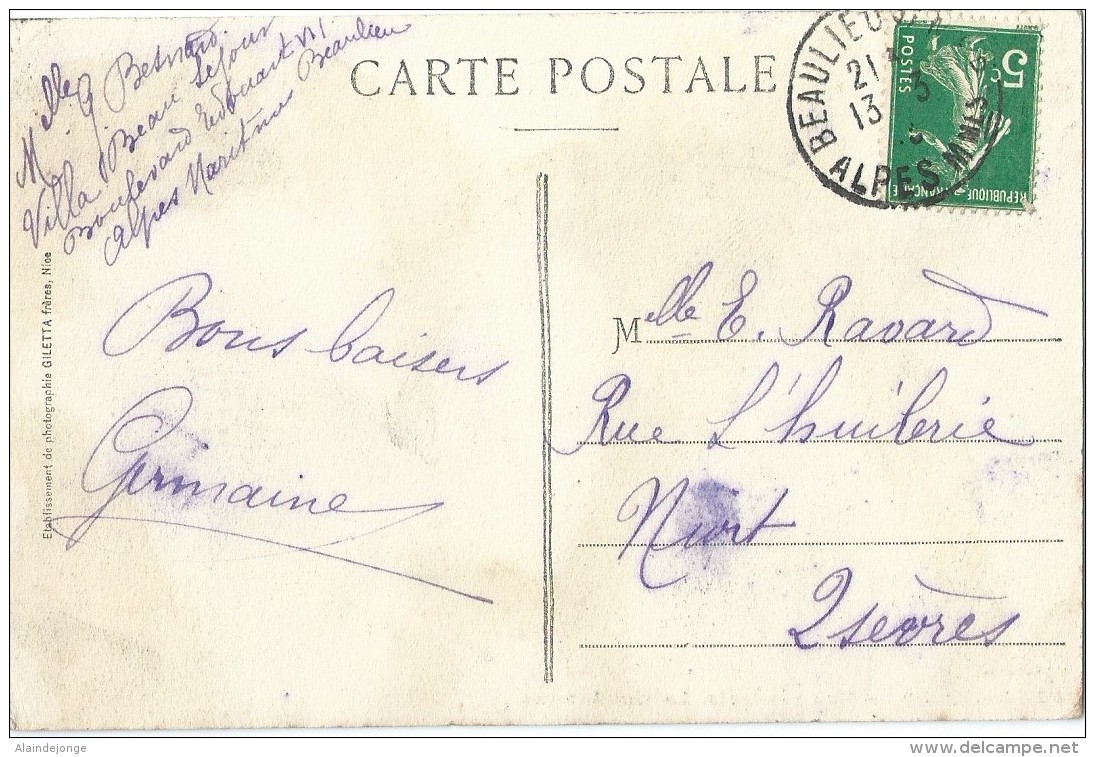 CARTE POSTALE
Melle G Besnard
Villa Beau Sejour
Boulevard Edouart VII Beaulieu
Alpes Maritmes
Bons baisers
Germaine
Etablissement de photographie GILETTA frères, Nice
BEAULIEU
21
13
5
ALPES MMES
5c
POSTES
REPUBLIQUE FRANÇAISE
Melle E. Ravard
Rue L'huilerie
Niort
2 sèvres
Alaindejonge
www.delcampe.net